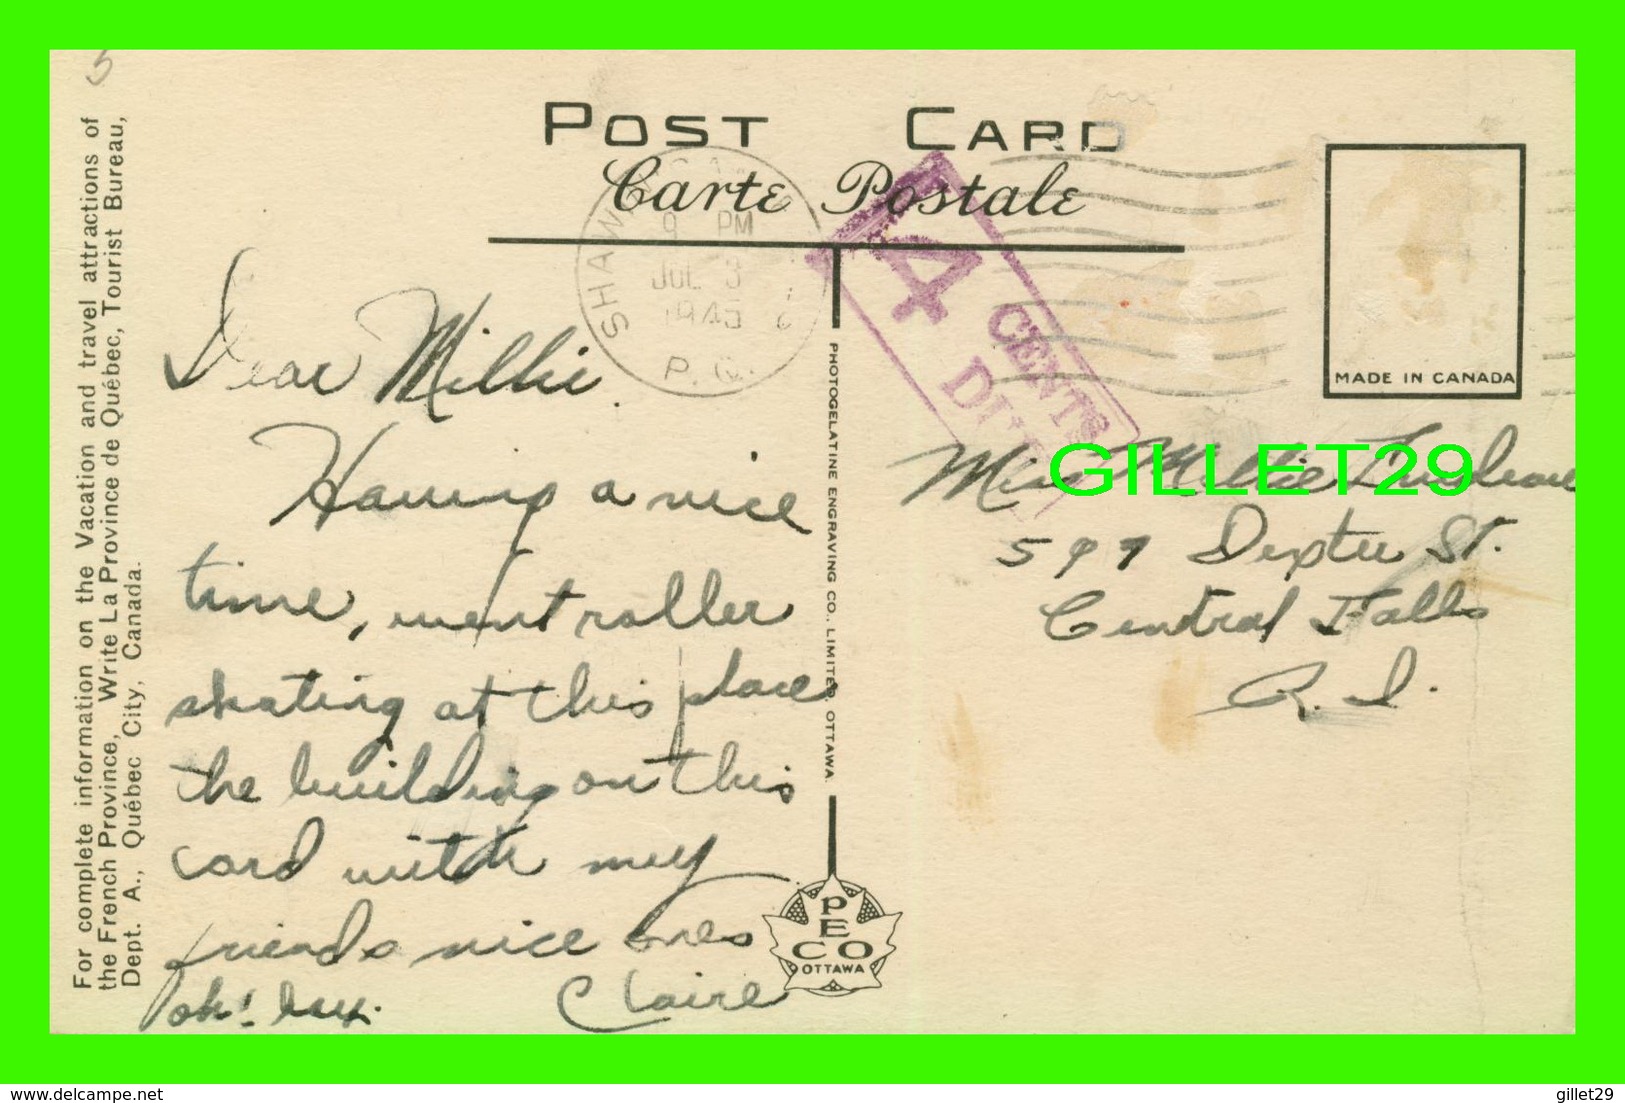 5
For complete information on the Vacation and travel attractions of
the French Province, Write La Province de Québec, Tourist Bureau,
Dept. A., Québec City, Canada.
POST CARD
Carte Postale
SHAWINIGAN
9 PM
JUL 3
1945
P.Q.
4
CENTS
DUE
MADE IN CANADA
Dear Millie.
Having a nice
time, went roller
skating at this place
the building on this
card with my
friends nice ones
oh! Claire
PHOTOGELATINE ENGRAVING CO., LIMITED, OTTAWA.
PECO
OTTAWA
Miss Millie
597 Dexter St.
Central Falls
R.I.
GILLET29
delcampe.net
gillet29